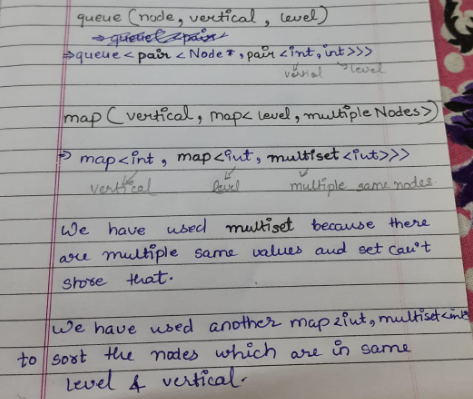 queue (node, vertical, level)
⇒ queue< pair
⇒ queue< pair < Node*, pair <int, int>>>
vertical level
map ( vertical, map< level, multiple Nodes>)
⇒ map<int, map<int, multiset <int>>>
vertical level multiple same nodes.
We have used multiset because there
are multiple same values and set can't
store that.
We have used another map <int, multiset<int>
to sort the nodes which are in same
level & vertical.